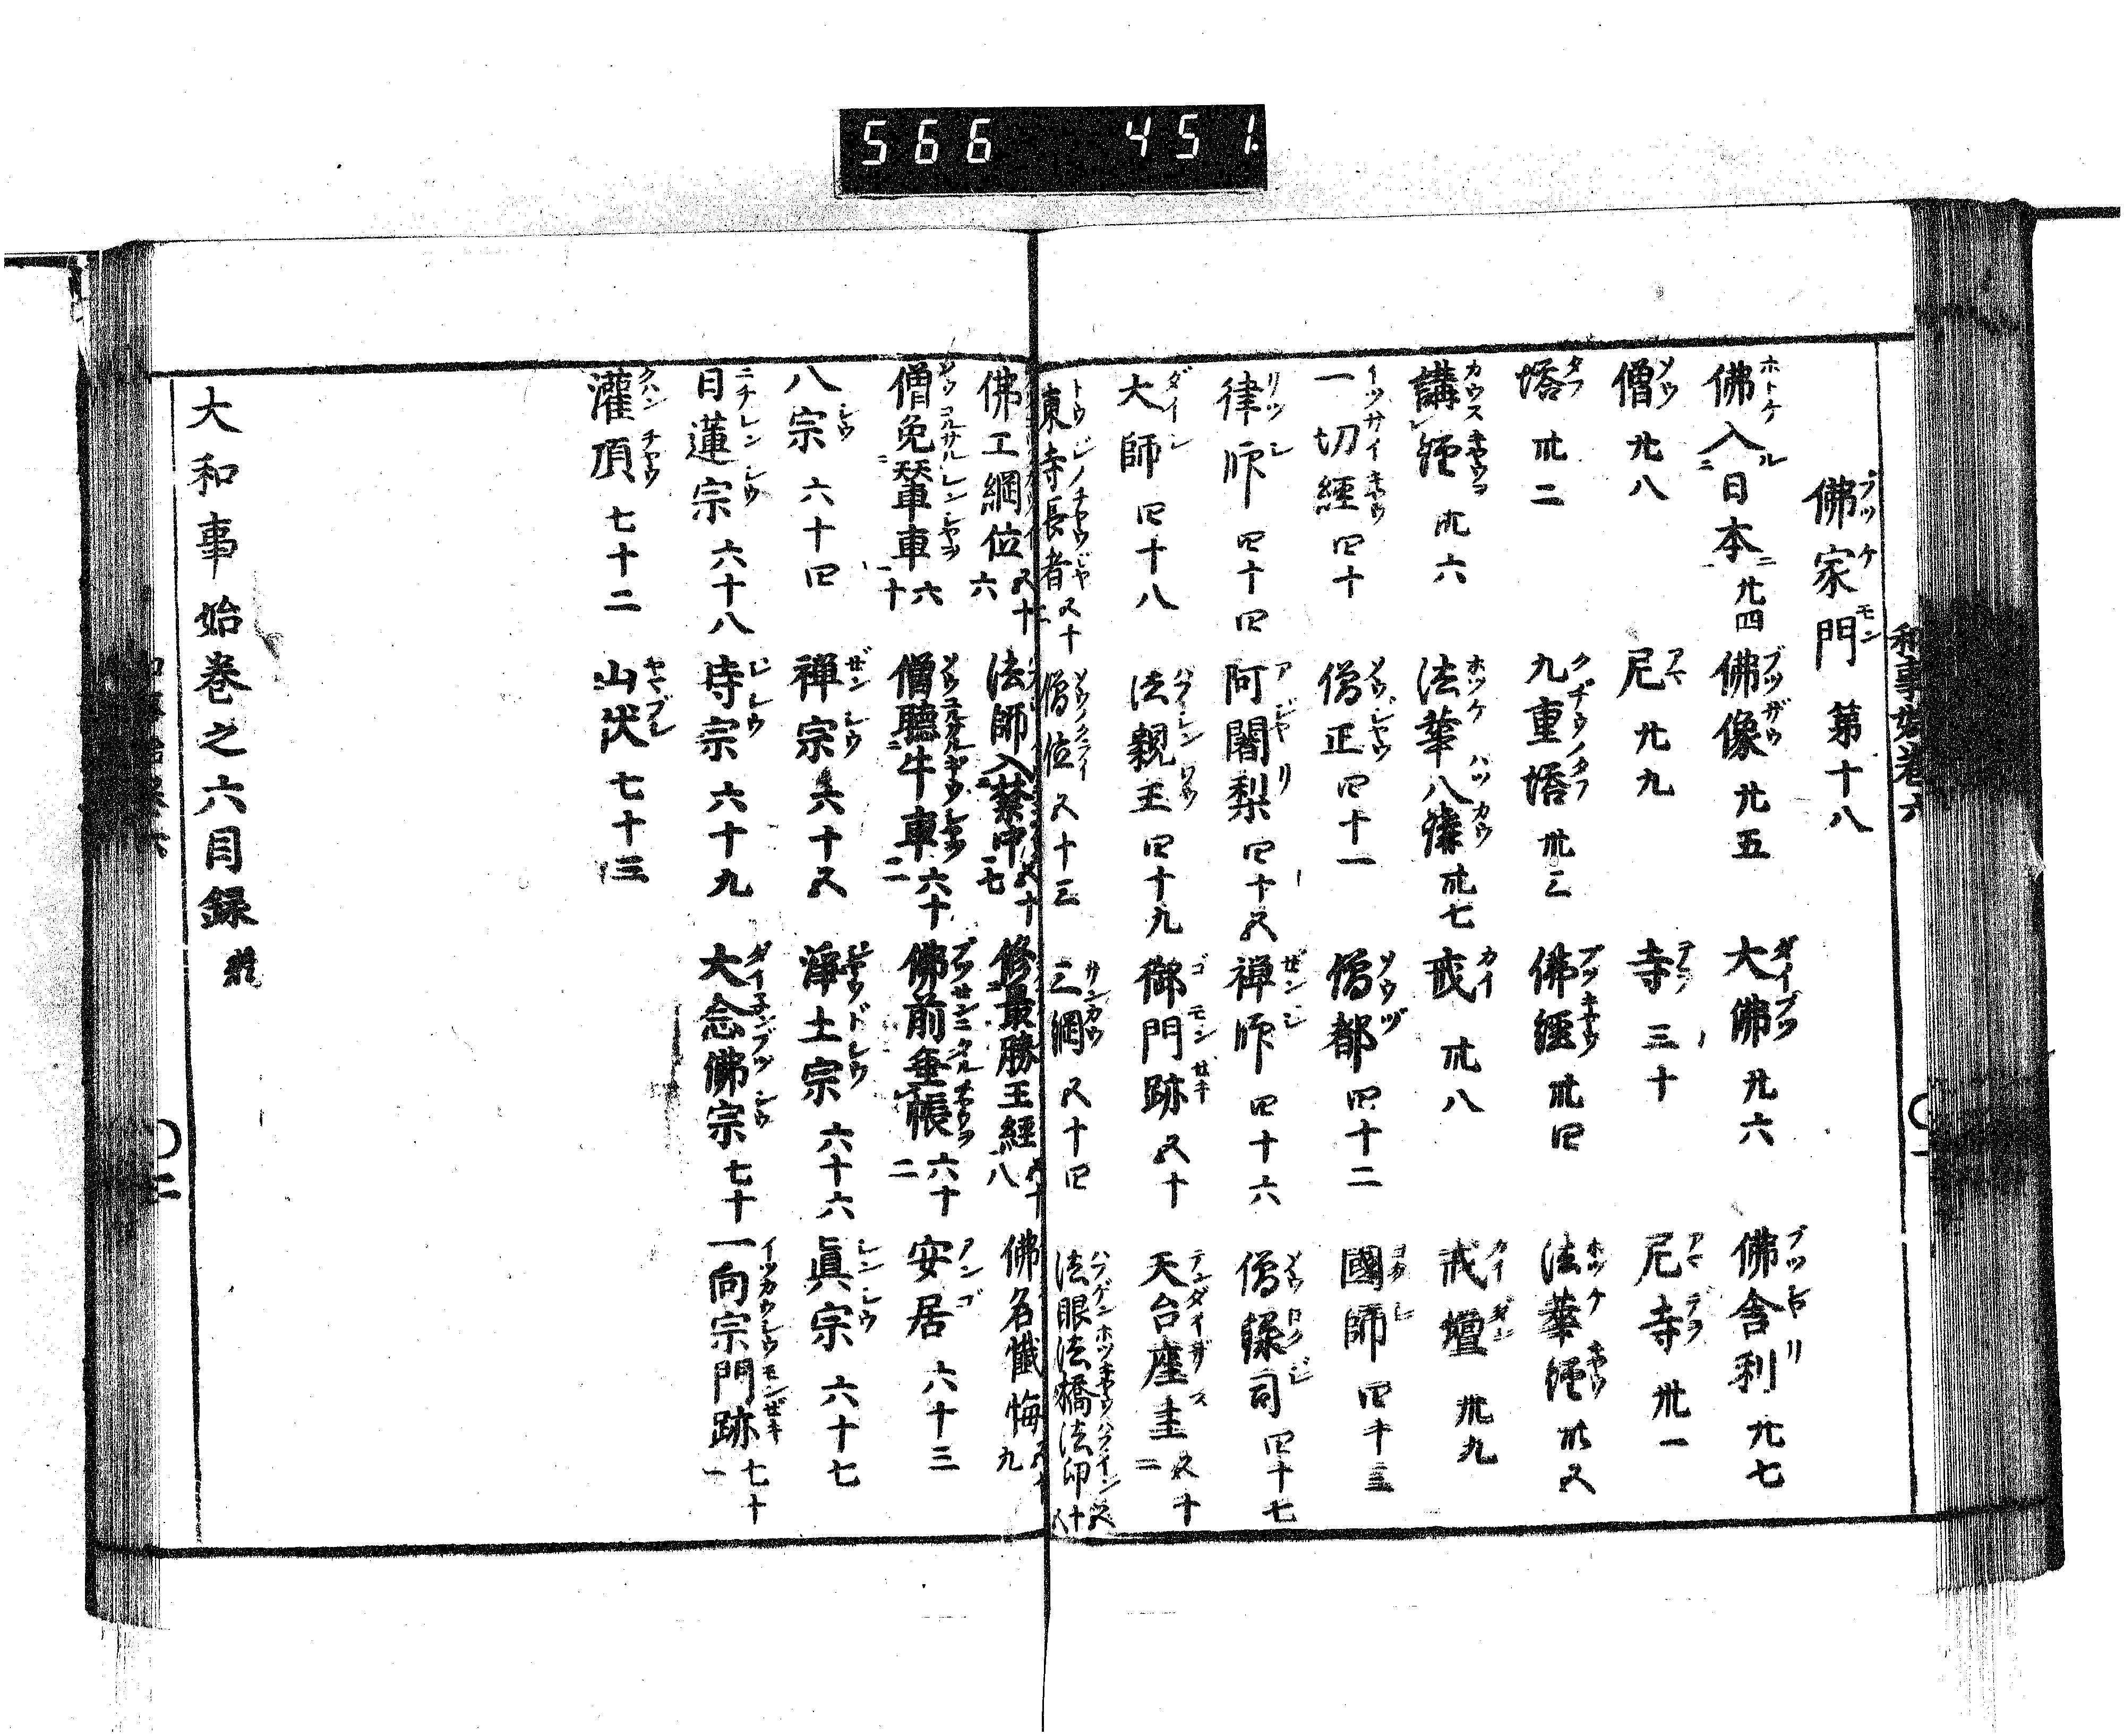 566 451.
和事始卷六
佛家門 第十八
佛入日本 廿四 佛像 廿五 大佛 廿六 佛舍利 廿七
僧 廿八 尼 廿九 寺 三十 尼寺 卅一
塔 卅二 九重塔 卅三 佛經 卅四 法華經 卅五
講經 卅六 法華八講 卅七 戒 卅八 戒壇 卅九
一切經 四十 僧正 四十一 僧都 四十二 國師 四十三
律師 四十四 阿闍梨 四十五 禅師 四十六 僧録司 四十七
大師 四十八 法親王 四十九 御門跡 五十 天台座主 五十一
東寺長者 五十二 僧位 五十三 三綱 五十四 法眼法橋法印 五十五
佛工綱位 五十六 法師入禁中 五十七 修最勝王經 五十八 佛名懺悔 五十九
僧免輦車 六十 僧聴牛車 六十一 佛前垂帳 六十二 安居 六十三
八宗 六十四 禅宗 六十五 淨土宗 六十六 眞宗 六十七
日蓮宗 六十八 時宗 六十九 大念佛宗 七十 一向宗門跡 七十一
灌頂 七十二 山伏 七十三
大和事始巻之六目録 終
二